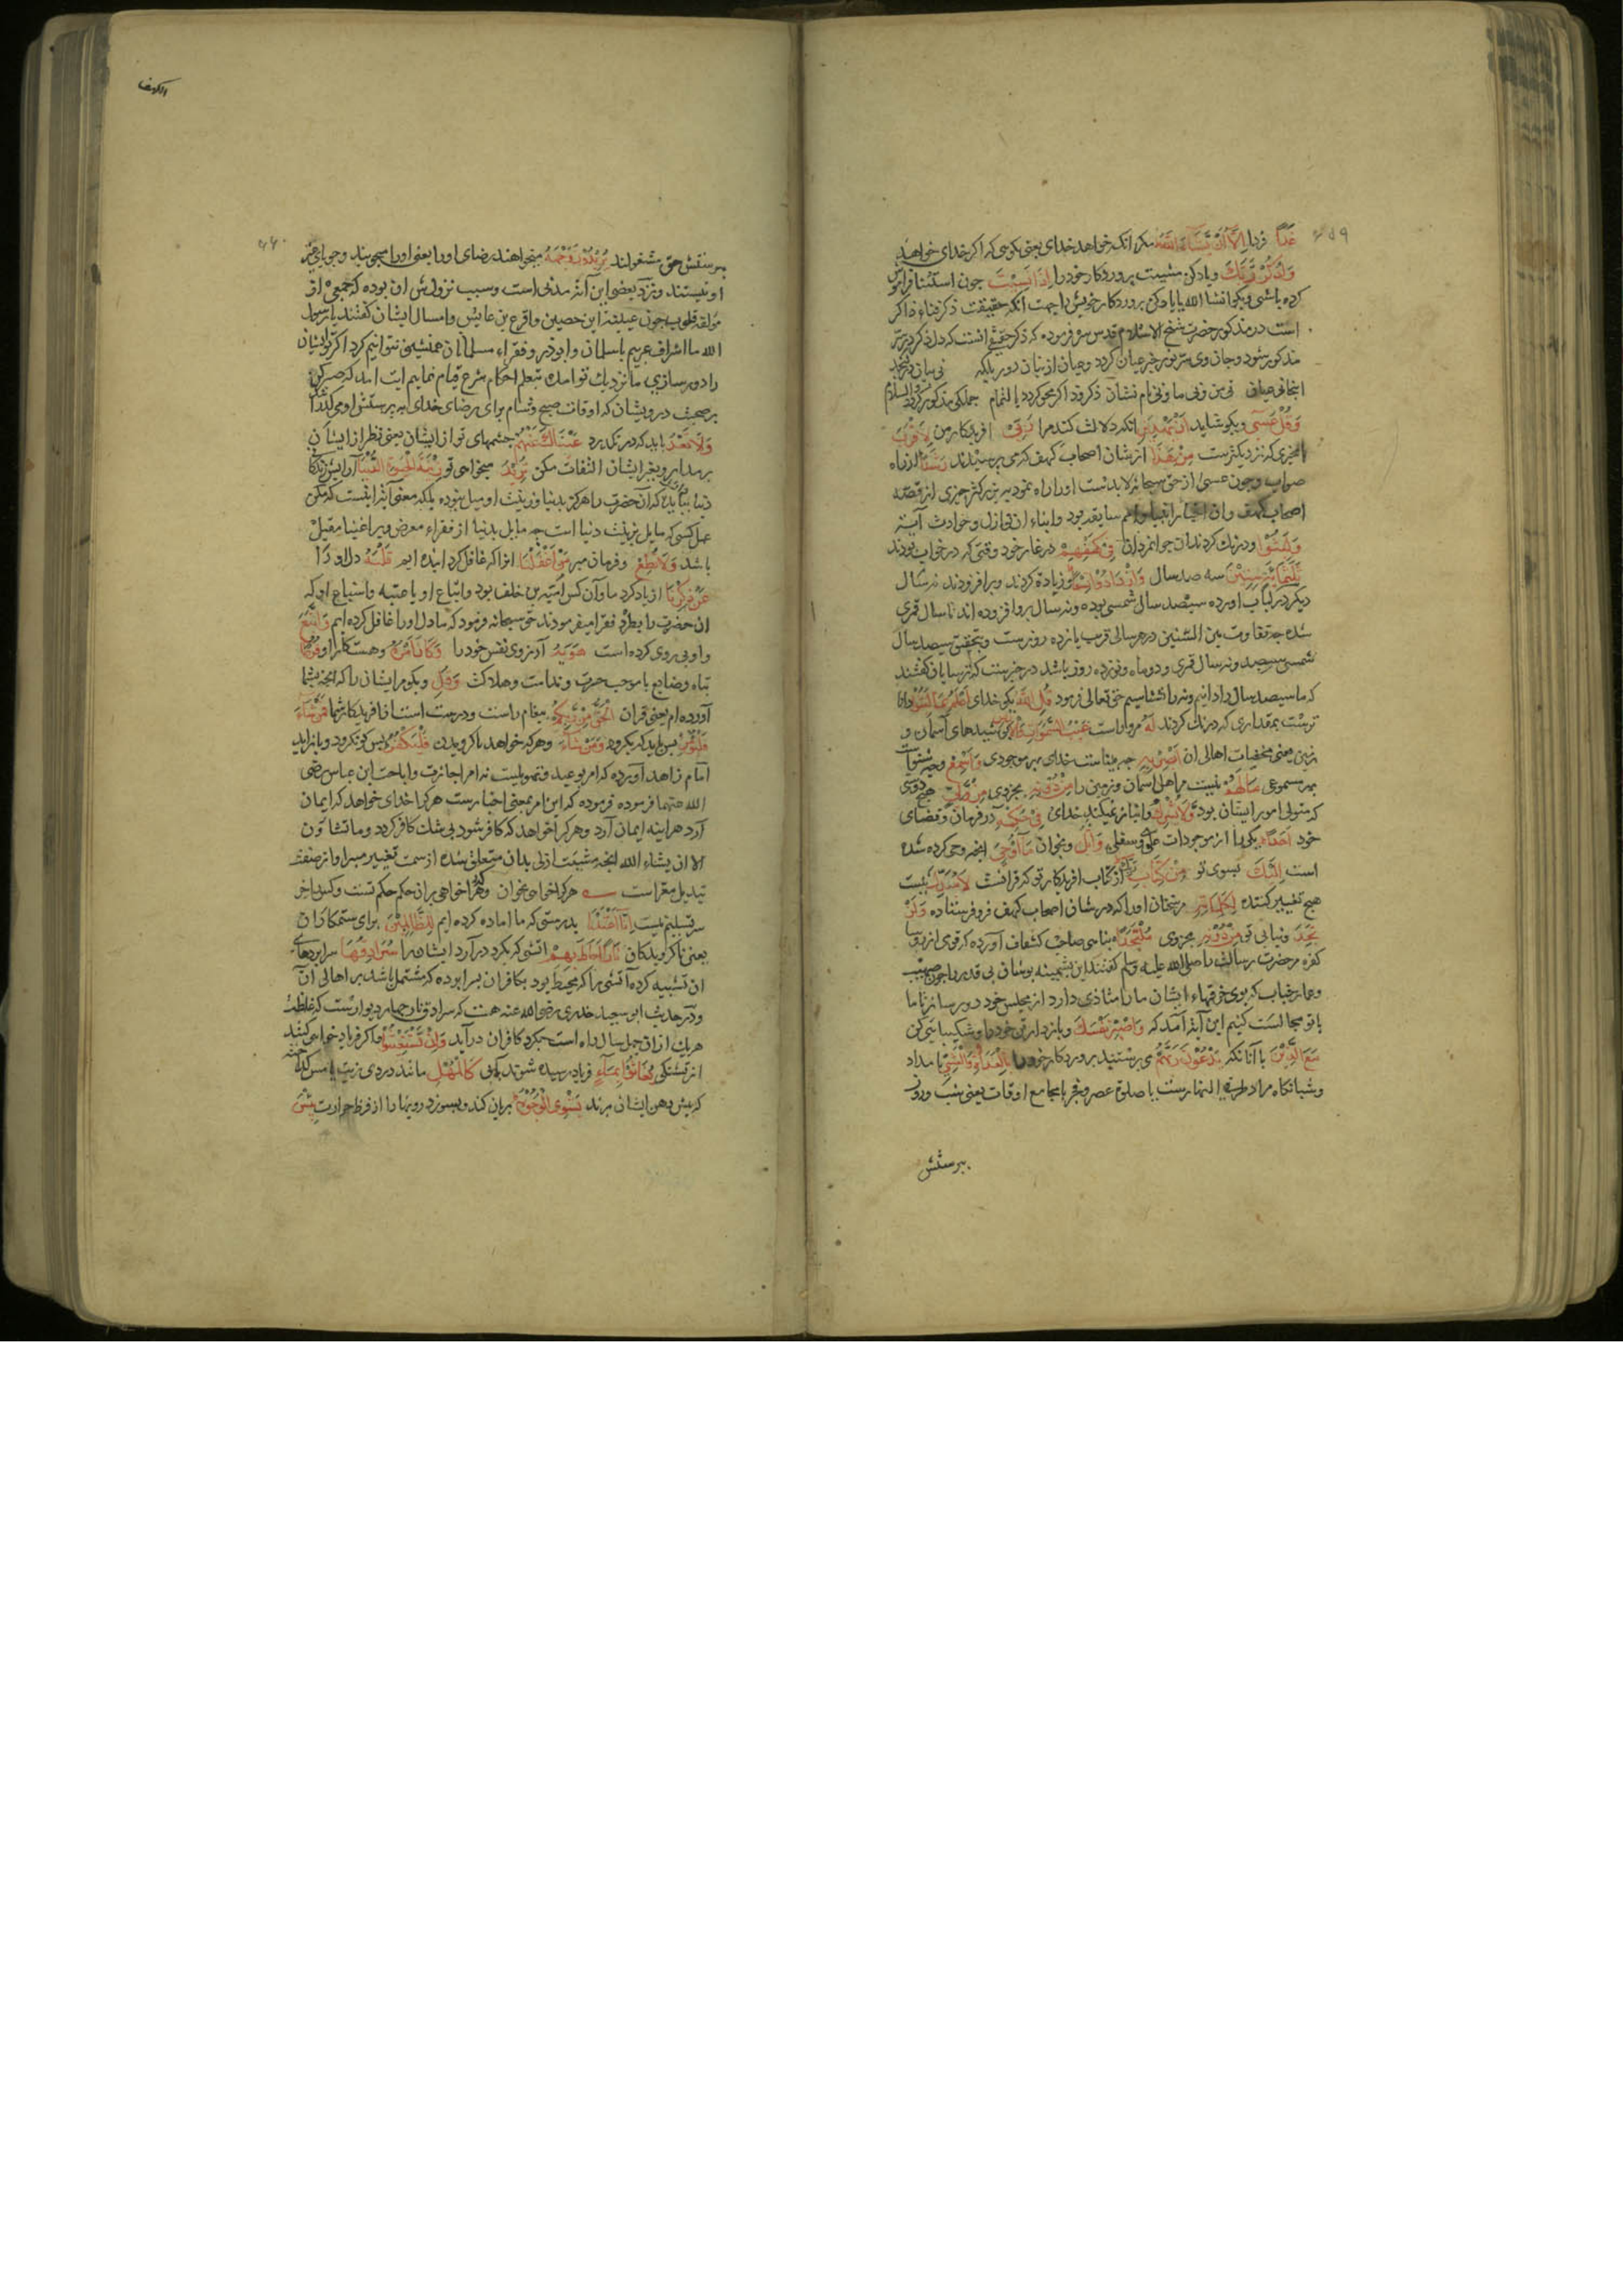 ۶۵۹
غَدًا فردا اِلَّا اَنْ يَشَاءَ اللّٰهُ مكر انك خواهد خداى يعنى بكوسى كه اكر خداى خواهد
وَاذْكُرْ رَبَّكَ و ياد كن مشيت پروردكار خود را اِذَا نَسِيْتَ چون استثنا فراموش
كرده باشى وبكو انشا الله يا ياد كن پروردكار خويش را جهت انكه حقيقت ذكر فناء ذاكر
است در مذكور حضرت شيخ الاسلام قدس سره فرموده كه ذكر حقيقى انست كه
مذكور شود وجان وى سر نور خبر عيان كردد وعيان از بيان دور بلكه نى بيان
نى من ونى ما ونى نام نشان ذكر ود اكر محو كردد يا لتمام جملكى مذكور كردد والسلام
وَقُلْ عَسٰى وبكو شايد اَنْ يَهْدِيَنِ انكه دلالت كند مرا رَبِّيْ افريدكار من لِاَقْرَبَ
بچيزى كه نزديكترست مِنْ هٰذَا از شان اصحاب كهف كه مى پرسيدند رَشَدًا از راه
صواب وچون عسى از حق سبحانه لابدست او را راه نمود ببزركتر چيزى از قصه
اصحاب كهف وان اخبار انبيا وامم سابقه بود وانباء از نوازل وحوادث آتيه
وَلَبِثُوْا ودرنك كردند ان جوانمردان فِيْ كَهْفِهِمْ در غار خود وقتى كه در خواب بودند
ثَلٰثَ مِائَةٍ سِنِيْنَ سه صد سال وَازْدَادُوْا تِسْعًا وزياده كردند وبرافزودند نه سال
ديكر در لباب اورده سيصد سال شمسى بوده ونه سال برو افزوده اند تا سال قمرى
شده چه تفاوت بين السنتين در هر سالى قريب يازده روزست وبتحقيق سيصد سال
شمسى سيصد ونه سال قمرى ودو ماه ونوزده روز باشد در خبرست كه ترسايان كفتند
كه ما سيصد سال را دانيم ونه را نشناسيم حق تعالى فرمود قُلِ اللّٰهُ بكو خداى اَعْلَمُ بِمَا لَبِثُوْا دانا
ترست بمقدارى كه درنك كردند لَهُ مر او راست غَيْبُ السَّمٰوٰتِ وَالْاَرْضِ پوشيدهاى آسمان و
زمين يعنى مخفيات اهالى ان اَبْصِرْ بِهٖ چه بيناست خداى بهر موجودى وَاَسْمِعْ وچه شنواست
بهر مسموعى مَا لَهُمْ نيست مر اهل اسمان وزمين را مِنْ دُوْنِهٖ بجز وى مِنْ وَّلِيٍّ هيچ دوستى
كه متولى امور ايشان بود وَلَا يُشْرِكُ وانباز نميكند خداى فِيْ حُكْمِهٖ در فرمان وقضاى
خود اَحَدًا يكى را از موجودات علوى وسفلى وَاتْلُ وبخوان مَآ اُوْحِيَ انچه وحى كرده شده
است اِلَيْكَ بسوى تو مِنْ كِتَابِ رَبِّكَ از كتاب افريدكار تو كه قرانست لَا مُبَدِّلَ نيست
هيچ تغيير كننده لِكَلِمَاتِهٖ مر سخنان او را كه در شان اصحاب كهف فرو فرستاده وَلَنْ
تَجِدَ ونيابى تو مِنْ دُوْنِهٖ بجز وى مُلْتَحَدًا پناهى صاحب كشاف آورده كه قومى از رؤسا
كفره مر حضرت رسالت را صلى الله عليه وسلم كفتند اين پشمينه پوشان بى قدر را چون صهيب
وعمار وخباب كه بوى خرقهاء ايشان ما را متاذى دارد از مجلس خود دور ساز تا ما
با تو مجالست كنيم اين آيه آمد كه وَاصْبِرْ نَفْسَكَ وبازدار تن خود را وشكيبايى كن
مَعَ الَّذِيْنَ با آنانكه يَدْعُوْنَ رَبَّهُمْ مى پرستند پروردكار خود را بِالْغَدٰوةِ وَالْعَشِيِّ بامداد
وشبانكاه مراد طرفى النهارست يا صلوة عصر وفجر يا مجامع اوقات يعنى شب وروز
پرستش
الكهف
۶۶۰
پرستش حق مشغولند يُرِيْدُوْنَ وَجْهَهٗ ميخواهند رضاى او را يعنى او را ميجويند وجوياى غير
او نيستند ونزد بعضى اين آيه مدنى است وسبب نزولش ان بوده كه جمعى از
مؤلفه قلوب چون عيينه ابن حصين واقرع بن حابس وامثال ايشان كفتند يا رسول
الله ما اشراف عربيم با سلمان وابوذر وفقراء مسلمانان همنشينى نتوانيم كرد اكر تو ايشان
را دور سازى ما نزديك تو امده بتعلم احكام شرع قيام نماييم ايت امد كه صبر كن
بر صحبت درويشان كه اوقات صبح وشام براى رضاى خداى به پرستش او مى كذارند
وَلَا تَعْدُ بايد كه درنكذرد عَيْنَاكَ عَنْهُمْ چشمهاى تو از ايشان يعنى نظر از ايشان
برمدار وبغير ايشان التفات مكن تُرِيْدُ ميخواهى تو زِيْنَةَ الْحَيٰوةِ الدُّنْيَا آرايش زندكانى
دنيا كه آن حضرت را هركز بدنيا وزينت او ميل نبوده بلكه معنى آيه اينست كه مكن
عمل كسى كه مايل بزينت دنيا است چه مايل بدنيا از فقراء معرض وبر اغنيا مقبل
باشد وَلَا تُطِعْ وفرمان مبر مَنْ اَغْفَلْنَا انرا كه غافل كردانيده ايم قَلْبَهٗ دل او را
عَنْ ذِكْرِنَا از ياد كرد ما وآن كس اميه بن خلف بود واتباع او يا عتبه واشياع او كه
ان حضرت را بطرد فقرا ميفرمودند حق سبحانه فرمود كه ما دل او را غافل كرده ايم وَاتَّبَعَ
واو پى روى كرده است هَوٰيهُ آرزوى نفس خود را وَكَانَ اَمْرُهٗ وهست كار او فُرُطًا
تباه وضايع يا موجب حسرت وندامت وهلاكت وَقُلْ وبكو مر ايشان را كه انچه بشما
آورده ام يعنى قران الْحَقُّ مِنْ رَبِّكُمْ پيغام راست ودرست است از افريدكار شما فَمَنْ شَاءَ
فَلْيُؤْمِنْ پس بايد كه بكرود وَمَنْ شَاءَ وهر كه خواهد ناكرويدن فَلْيَكْفُرْ پس كو نكرود
امام زاهد آورده كه امر بوعيد وتهويلست نه امر اجازت واباحت ابن عباس رضى
الله عنهما فرموده كه اين امر بمعنى اخبارست هر كرا خداى خواهد كه ايمان
آرد هراينه ايمان آرد وهر كرا خواهد كه كافر شود بى شك كافر كردد وما تشاؤن
الا ان يشاء الله انچه مشيت ازلى بدان متعلق شده از سمت تغيير مبرا واز صفت
تبديل معراست هر كرا خواهى بخوان وهر كرا خواهى بران حكم حكم تست وكس را جز
سر تسليم نيست اِنَّا اَعْتَدْنَا بدرستى كه ما اماده كرده ايم لِلظّٰالِمِيْنَ براى ستمكاران
يعنى ناكرويدكان نَارًا اَحَاطَ بِهِمْ اتشى كه بكرد درآرد ايشان را سُرَادِقُهَا سراپردهاى
ان تشبيه كرده آتشى را كه محيط بود بكافران بسراپرده كه مشتمل باشد بر اهالى آن
ودر حديث ابو سعيد خدرى رضى الله عنه هست كه سرادق نار چهار ديوارست كه غلظت
هر يك ازان چهل ساله راه است بكرد كافران درآيد وَاِنْ يَسْتَغِيْثُوْا واكر فرياد خواهى كنند
از تشنكى يُغَاثُوْا بِمَاءٍ فرياد رسيده شوند بآبى كَالْمُهْلِ مانند دردى زيت يا مس كداخته
كه پيش دهن ايشان برند يَشْوِي الْوُجُوْهَ بريان كند وبسوزد رويها را از فرط حرارت بِئْسَ